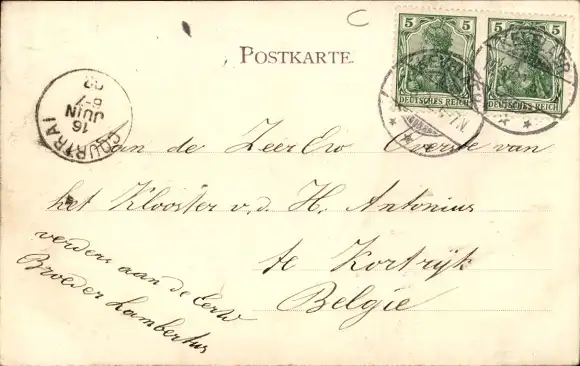 POSTKARTE.
5 5
DEUTSCHES REICH
5 5
DEUTSCHES REICH
KEVELAER
COURTRAI
16
JUIN
6-7
aan de ZeerEw Overste van
het Klooster v. d. H. Antonius
te Kortrijk
België
verders aan de Eerw
Broeder Lambertus